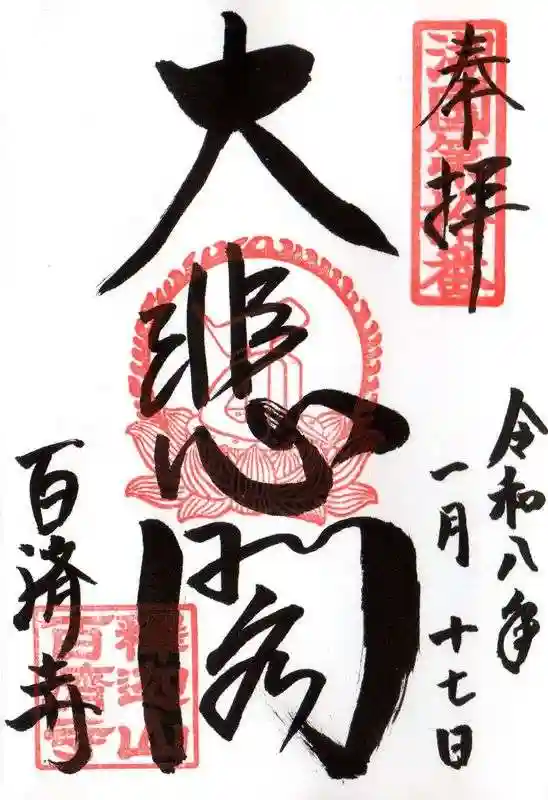 奉拝
令和八年
一月十七日
大悲閣
百済寺
釋迦山
百濟寺